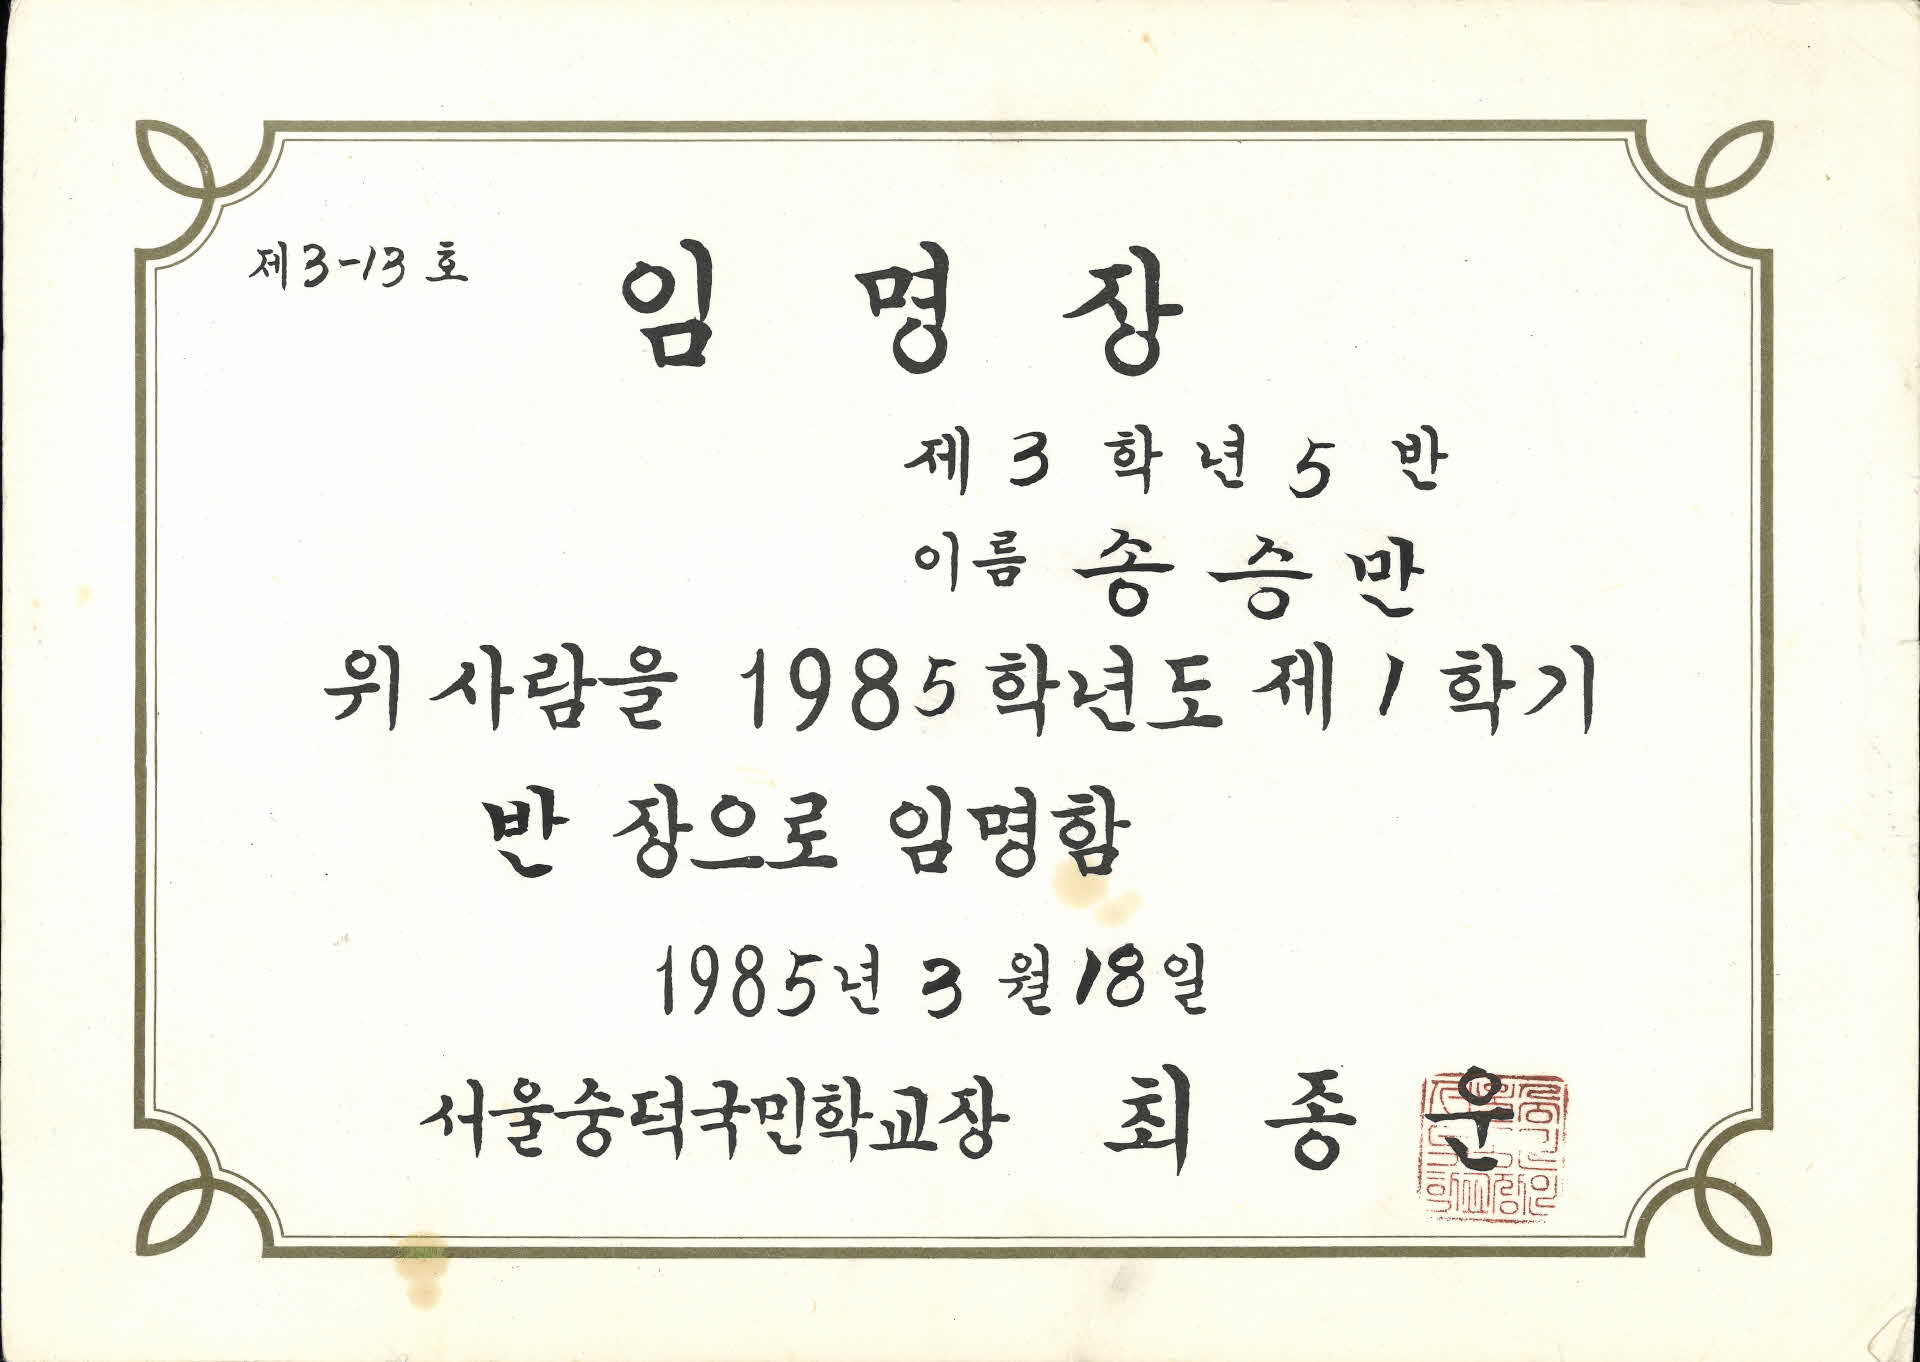 제3-13호
임명장
제 3 학년 5 반
이름 송승만
위 사람을 1985학년도 제 1 학기
반 장으로 임명함
1985년 3 월 18일
서울숭덕국민학교장 최종운